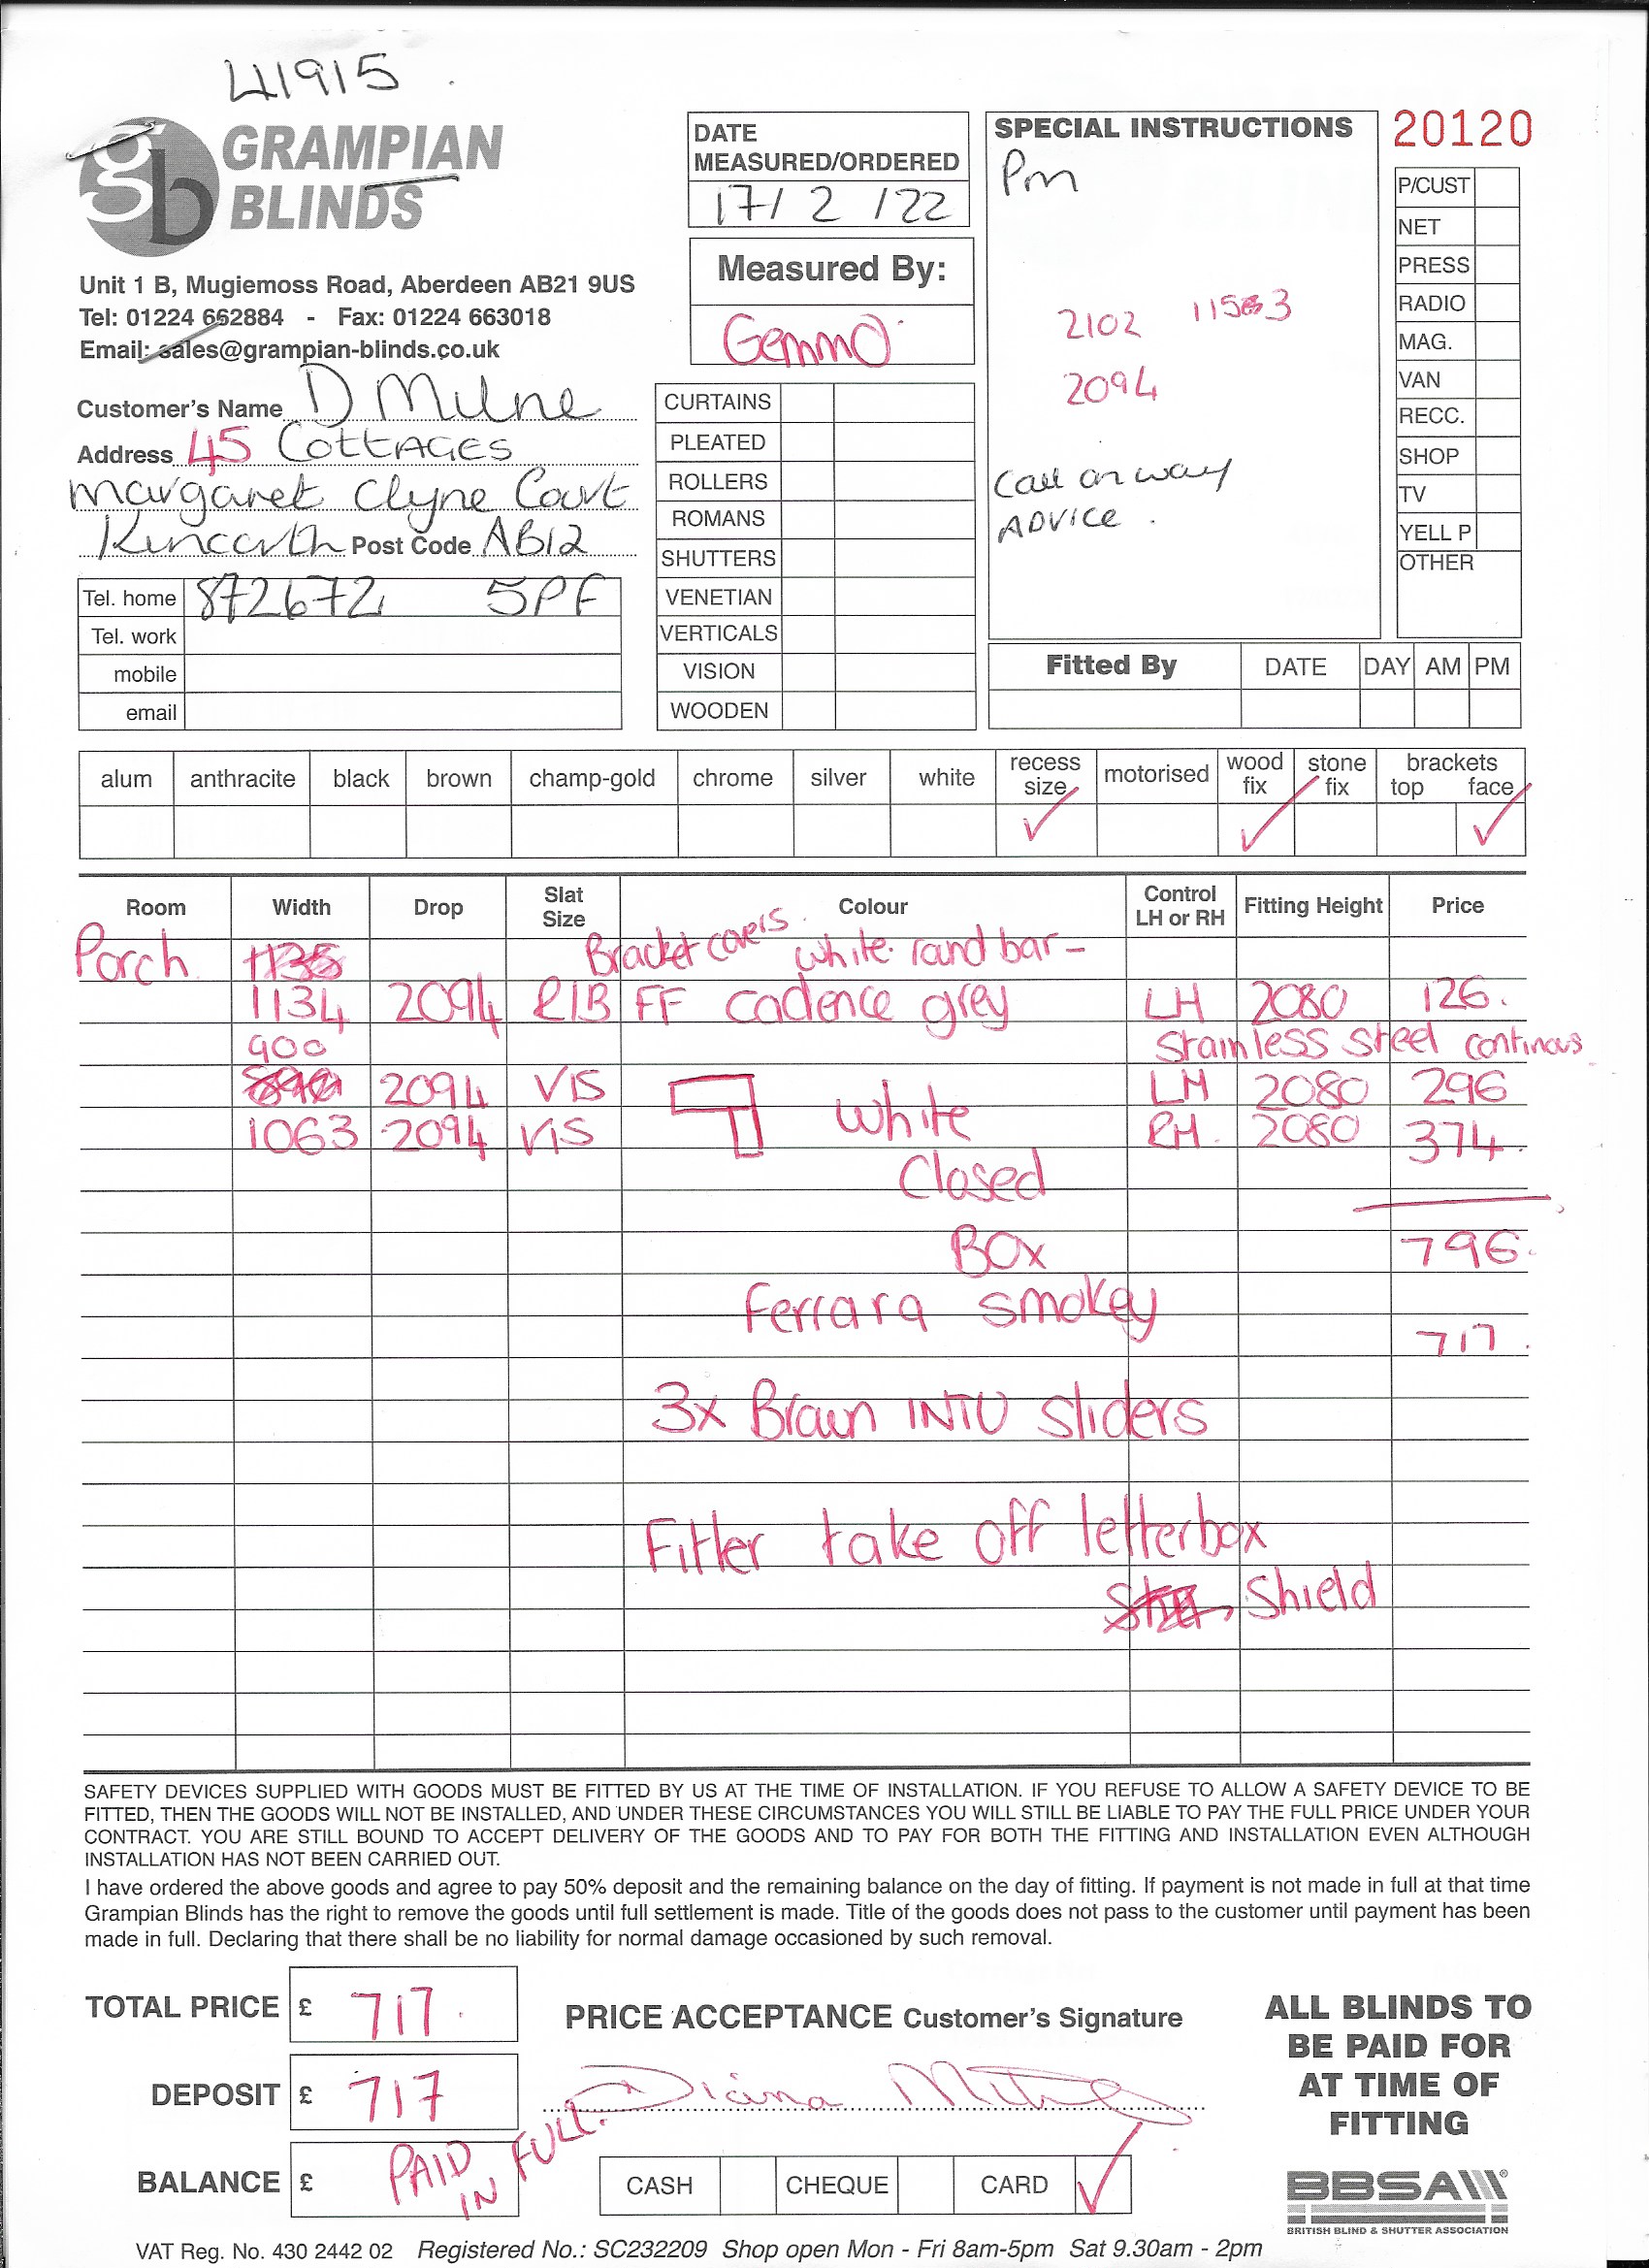 41915
GRAMPIAN
BLINDS
Unit 1 B, Mugiemoss Road, Aberdeen AB21 9US
Tel: 01224 662884 - Fax: 01224 663018
Email: sales@grampian-blinds.co.uk
Customer's Name D Milne
Address 45 Cottages
Margaret Clyne Court
Kincorth Post Code AB12
Tel. home 872672 5PF
Tel. work
mobile
email
DATE
MEASURED/ORDERED
17/ 2 /22
Measured By:
Gemma
CURTAINS
PLEATED
ROLLERS
ROMANS
SHUTTERS
VENETIAN
VERTICALS
VISION
WOODEN
SPECIAL INSTRUCTIONS
Pm
2102
2094
Call on way
ADVICE.
20120
P/CUST
NET
PRESS
RADIO
MAG.
VAN
RECC.
SHOP
TV
YELL P
OTHER
Fitted By DATE DAY AM PM
alum anthracite black brown champ-gold chrome silver white recess size motorised wood fix stone fix brackets top face
Room Width Drop Slat Size Colour Control LH or RH Fitting Height Price
Porch 1135 Bracket covers. White round bar -
1134 2094 RIB FF Cadence grey LH 2080 126.
900 Stainless steel continous
2094 VIS LH 2080 296
1063 2094 VIS White RH. 2080 374.
Closed
Box 796.
Ferrara smokey
717.
3x Braun INTU sliders
Fitter take off letterbox
Shield
SAFETY DEVICES SUPPLIED WITH GOODS MUST BE FITTED BY US AT THE TIME OF INSTALLATION. IF YOU REFUSE TO ALLOW A SAFETY DEVICE TO BE
FITTED, THEN THE GOODS WILL NOT BE INSTALLED, AND UNDER THESE CIRCUMSTANCES YOU WILL STILL BE LIABLE TO PAY THE FULL PRICE UNDER YOUR
CONTRACT. YOU ARE STILL BOUND TO ACCEPT DELIVERY OF THE GOODS AND TO PAY FOR BOTH THE FITTING AND INSTALLATION EVEN ALTHOUGH
INSTALLATION HAS NOT BEEN CARRIED OUT.
I have ordered the above goods and agree to pay 50% deposit and the remaining balance on the day of fitting. If payment is not made in full at that time
Grampian Blinds has the right to remove the goods until full settlement is made. Title of the goods does not pass to the customer until payment has been
made in full. Declaring that there shall be no liability for normal damage occasioned by such removal.
TOTAL PRICE £ 717.
DEPOSIT £ 717
BALANCE £ PAID IN FULL.
PRICE ACCEPTANCE Customer's Signature
Diana Milne
CASH CHEQUE CARD
ALL BLINDS TO
BE PAID FOR
AT TIME OF
FITTING
BBSA
BRITISH BLIND & SHUTTER ASSOCIATION
VAT Reg. No. 430 2442 02 Registered No.: SC232209 Shop open Mon - Fri 8am-5pm Sat 9.30am - 2pm